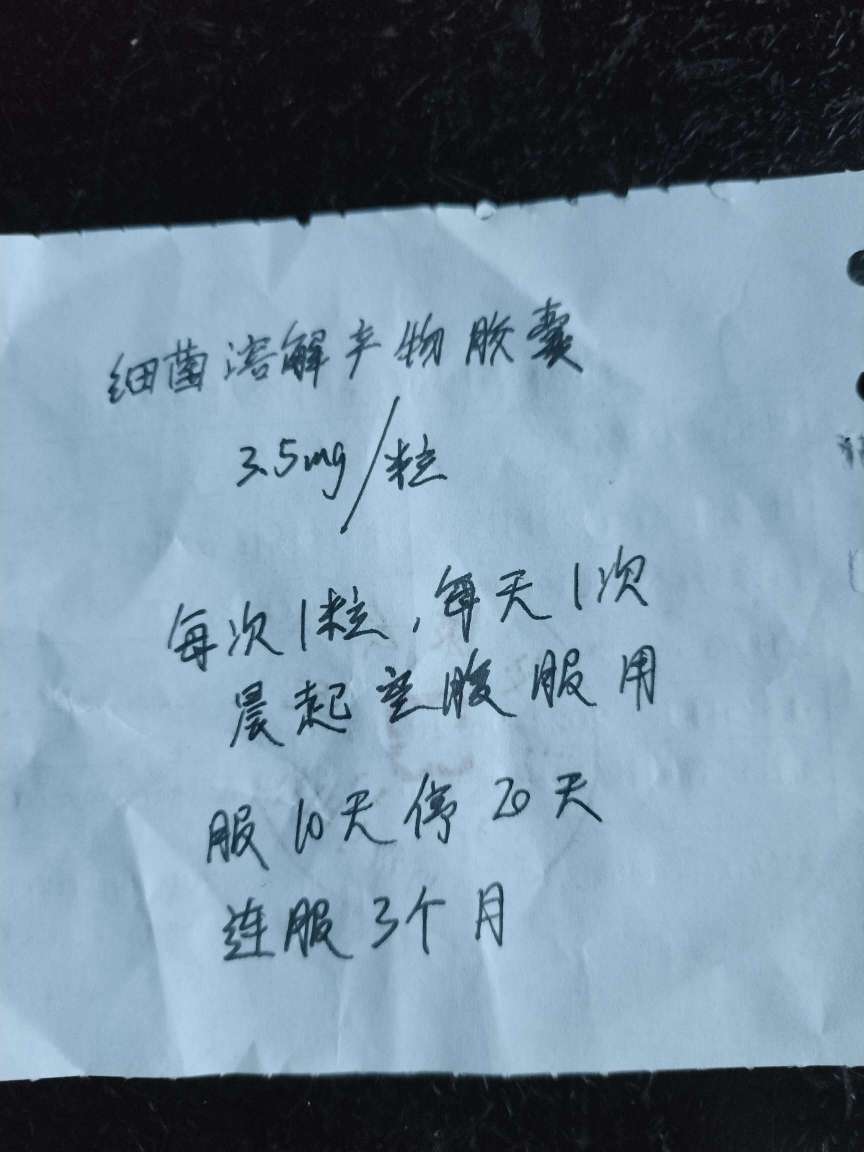 细菌溶解产物胶囊
3.5mg/粒
每次1粒,每天1次
晨起空腹服用
服10天停20天
连服3个月